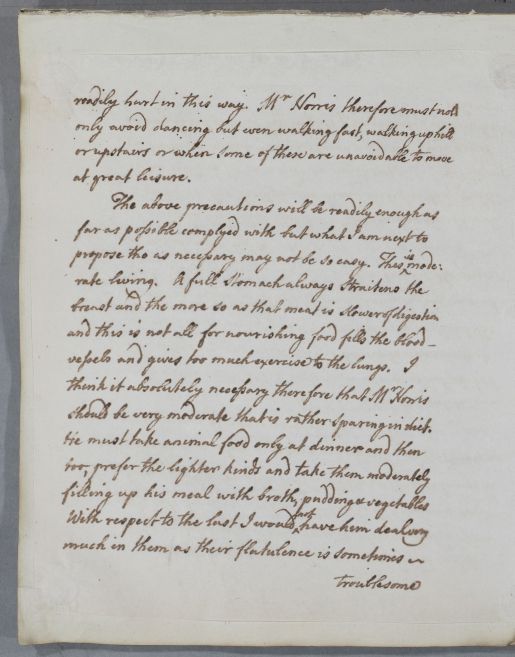 readily hurt in this way. Mr Norris therefore must not
only avoid dancing but even walking fast, walking uphill
or upstairs or when some of these are unavoidable to move
at great leisure.
The above precautions will be readily enough as
far as possible complyed with but what I am next to
propose tho as necessary may not be so easy. This is mode:
rate living. A full Stomach always Straitens the
breast and the more so as that meat is slower of digestion
and this is not all for nourishing food fills the blood-
vessels and gives too much exercise to the lungs. I
think it absolutely necessary therefore that Mr Norris
should be very moderate that is rather sparing in diet.
He must take animal food only at dinner and then
too, prefer the lighter kinds and take them moderately
filling up his meal with broth, pudding & vegetables
With respect to the last I would not have him deal very
much in them as their flatulence is sometimes
troublesome